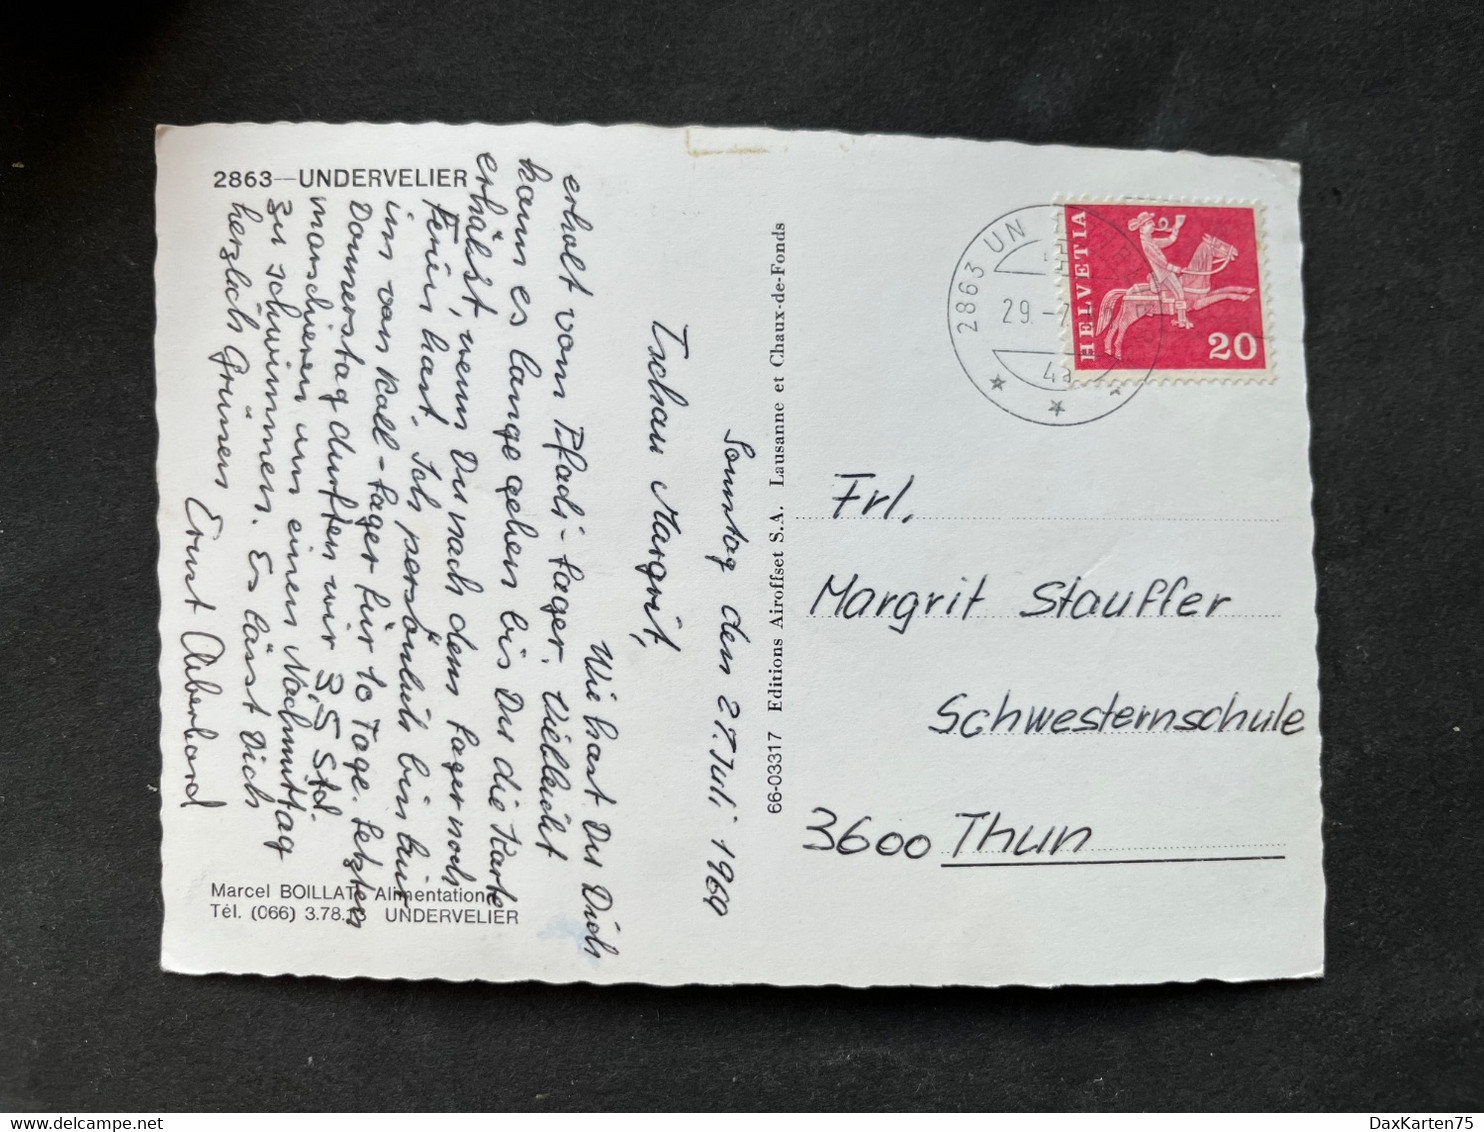 2863—UNDERVELIER
Sonntag den 27. Juli 1969
Tschau Margrit,
Wie hast Du Dich
erholt vom Pfadi-Lager. Vielleicht
kann es lange gehen bis Du die Karte
erhälst, wenn Du nach dem Lager noch
Ferien hast. Ich persönlich bin hier
im van Kall-Lager für 10 Tage. Letzten
Donnerstag durften wir 3 5 Std.
marschieren um einen Nachmittag
zu schwimmen. Es lässt Dich
herzlich Grüssen
Ernst Aeberhard
Marcel BOILLAT, Alimentation
Tél. (066) 3.78. UNDERVELIER
66-03317 Editions Airoffset S.A. Lausanne et Chaux-de-Fonds
2863 UN
29.-7
HELVETIA
20
Frl.
Margrit Stauffer
Schwesternschule
3600 Thun
DaxKarten75